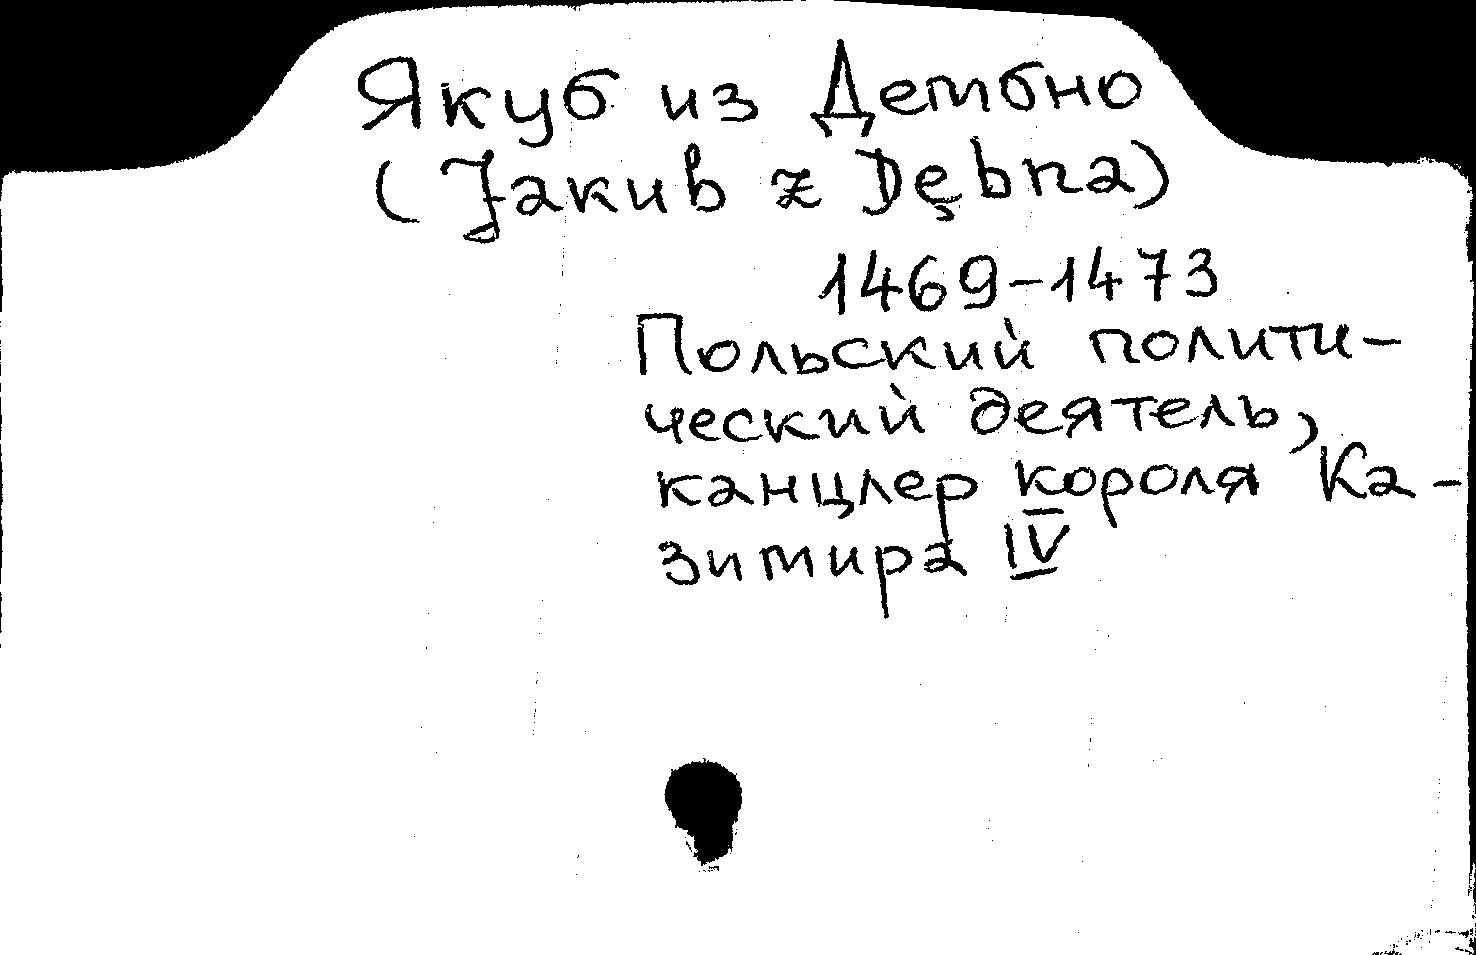 Якуб из Дембно
(Jakub z Dębna)
1469-1473
Польский полити-
ческий деятель,
канцлер короля Ка-
зимира IV